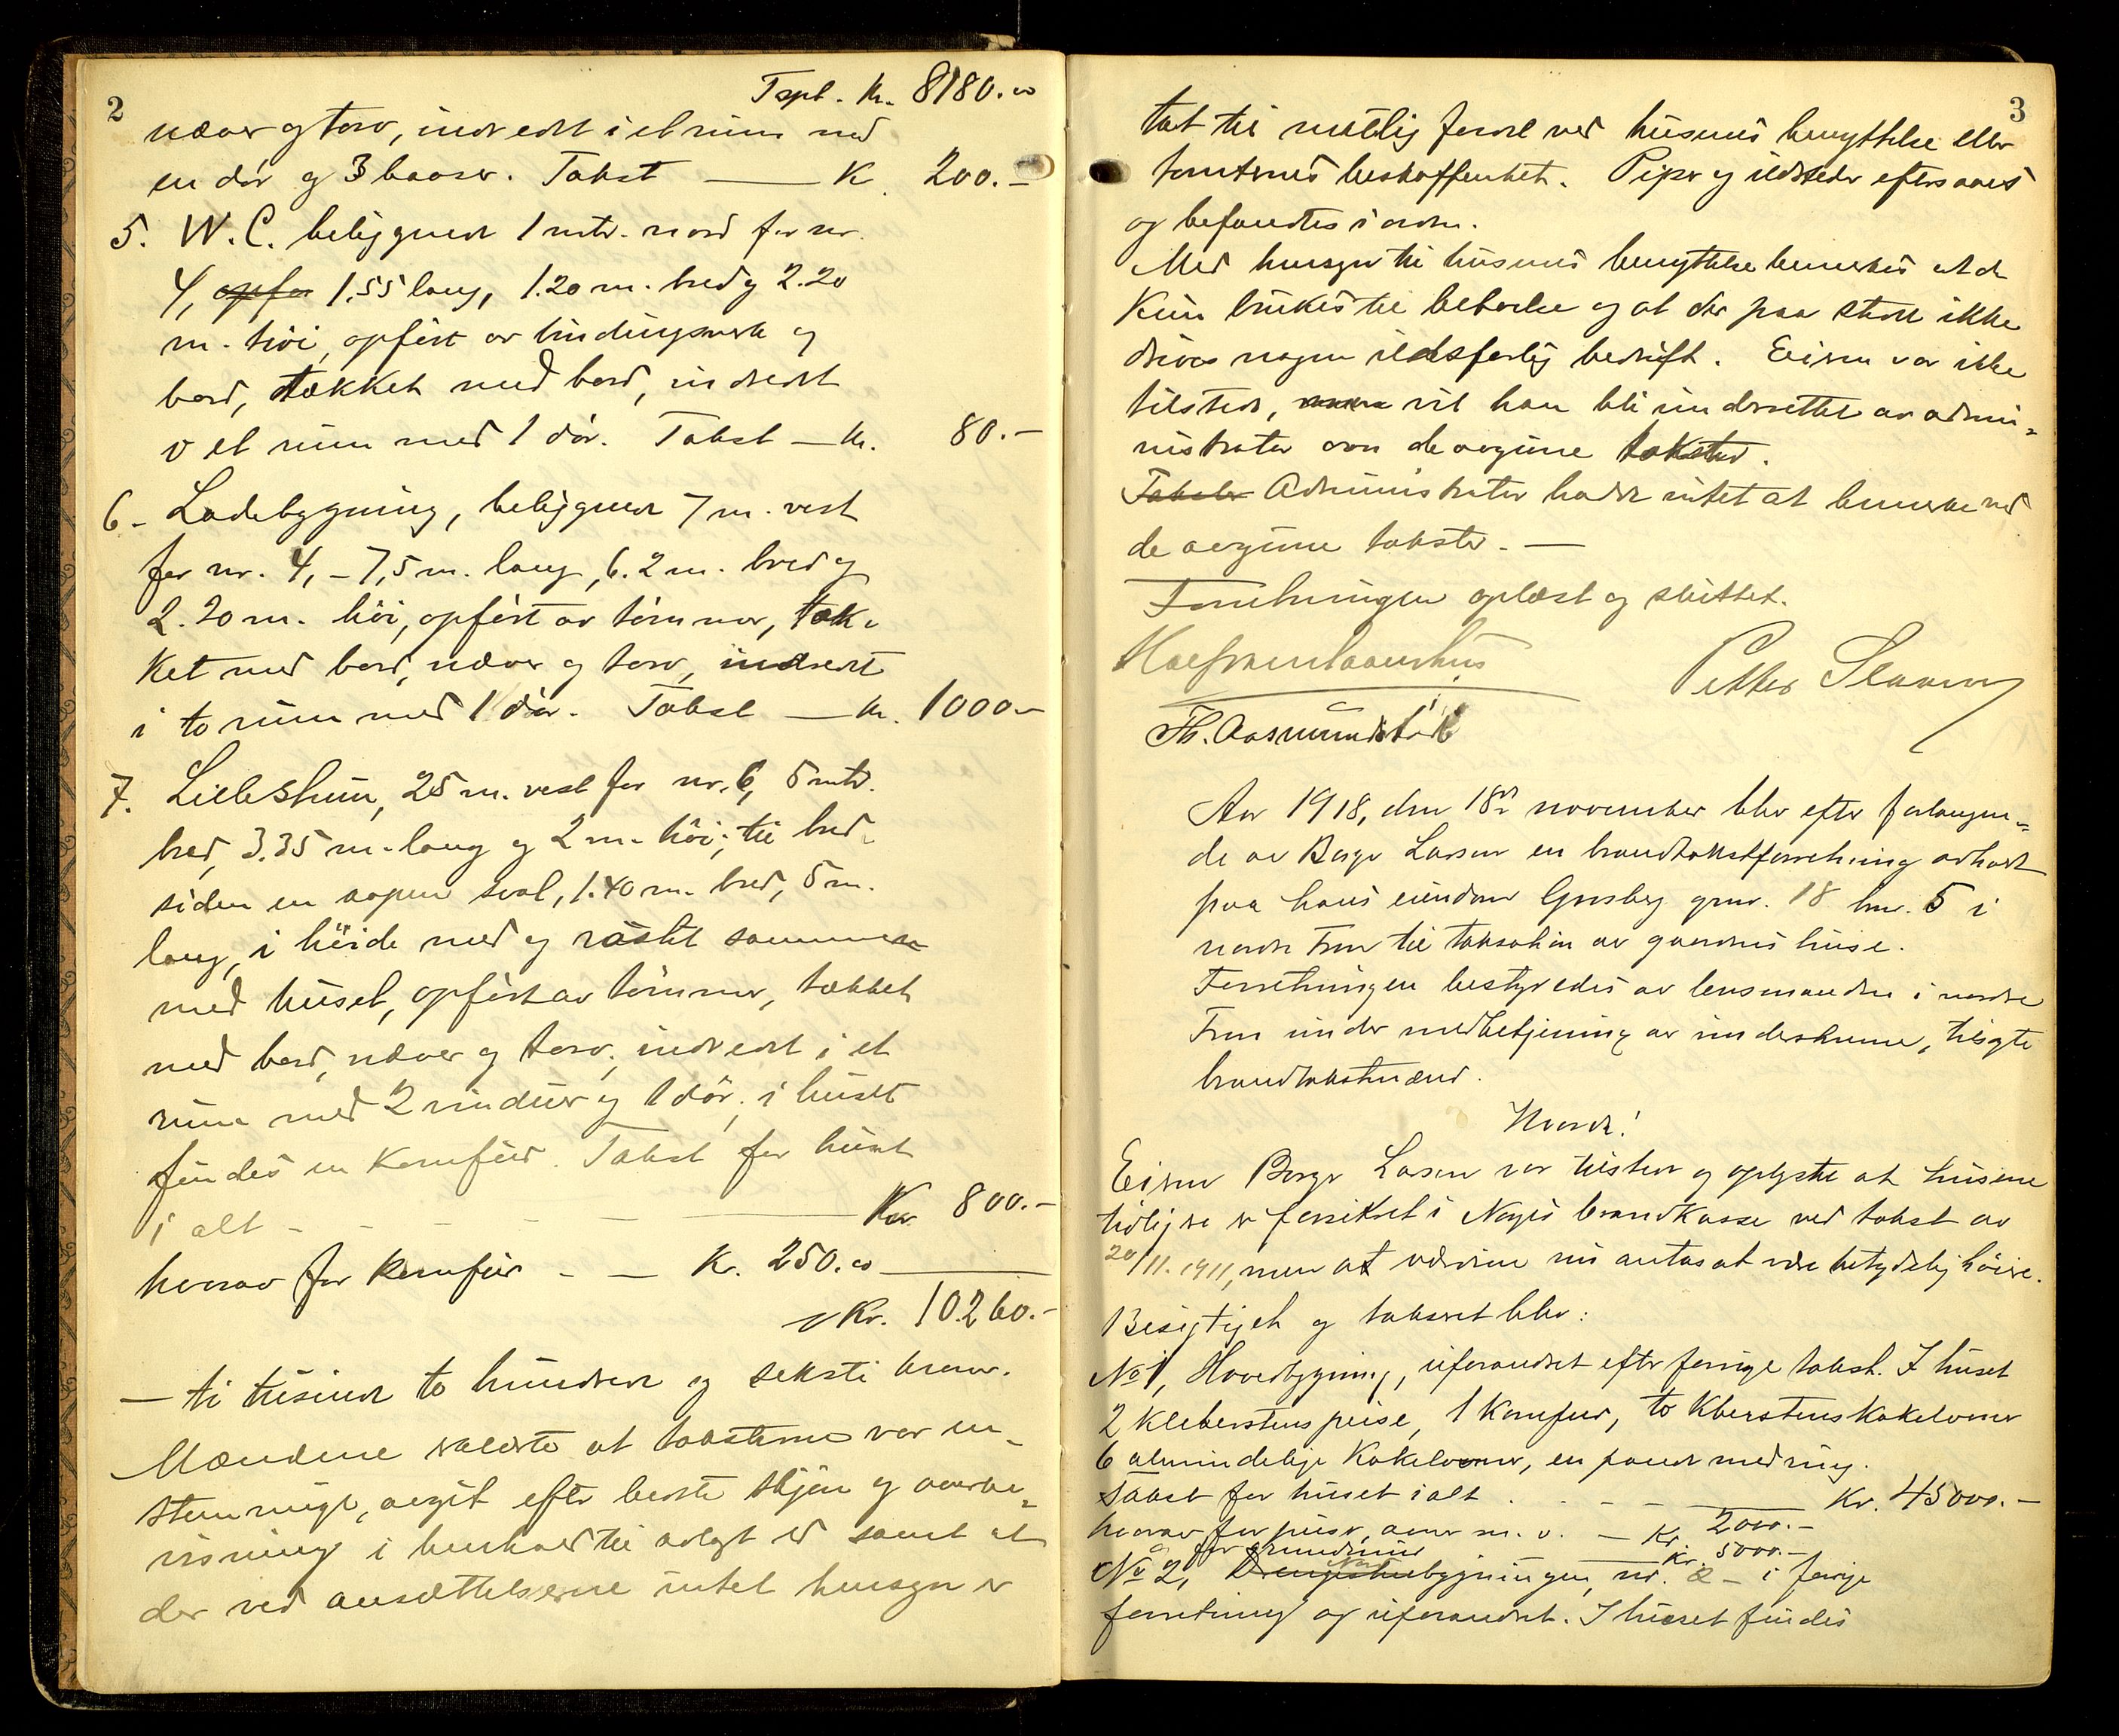 2
Tspt. Kr. 8180.00
næver og torv, indredet i et rum med
en dör og 3 baaser. Takst — K. 200.-
5. W.C. beliggende 1 mtr. nord for nr.
4, opfør 1.55 lang, 1.20 m. bred og 2.20
m. höi, opfört av bindingsverk og
bord, tækket med bord, indredet
i et rum med 1 dör. Takst — Kr. 80.-
6. Ladebygning, beliggende 7 m. vest
for nr. 4, - 7,5 m. lang, 6.2 m. bred og
2.20 m. höi, opfört av tömmer, tæk-
ket med bord, næver og torv, indredet
i to rum med 1 dör. Takst — Kr. 1000.-
7. Lillestuen, 25 m. vest for nr. 6, 5 mtr.
bred, 3.35 m. lang og 2 m. höi; til bred-
siden en aapen sval, 1.40 m. bred, 5 m.
lang, i höide med og röstet sammen
med huset, opfört av tömmer, tækket
med bord, næver og torv, indredet i et
rum med 2 vinduer og 1 dör; i huset
findes en Komfur. Takst for huset
i alt - - - - — Kr. 800.-
herav for komfur - — Kr. 250.00
Kr. 10.260.-
— ti tusinde to hundrede og seksti kroner.
Mændene erklærte at taksterne var en-
stemmige, avgit efter bedste skjön og overbe-
visning i henhold til avlagt ed samt at
der ved ansættelserne intet hensyn er
3
tat til mulig fare ved husenes benyttelse eller
tomternes beskaffenhet. Piper og ildsteder eftersaaes
og befandtes i orden.
Med hensyn til husenes benyttelse bemerkes at de
kun brukes til beboelse og at der paa stedet ikke
drives nogen ildsfarlig bedrift. Eieren var ikke
tilstede, men vil han bli underrettet av admi-
nistrator om de avgivne takster.
Takster Administrator hadde intet at bemerke ved
de avgivne takster. —
Forretningen oplæst og sluttet.
Petter
Th. Aasmundstad
Aar 1918, den 18de november blev efter forlangen-
de av Borge Larsen en brandtakstforretning avholdt
paa hans eiendom Grosberg gnr. 18 bnr. 5 i
nordre Fron til taksation av gaardens huse.
Forretningen bestyredes av lensmanden i nordre
Fron under medbetjening av underskrevne, tilsagte
brandtakstmænd.
Hvorda!
Eieren Borge Larsen var tilstede og oplyste at husene
tidligere er forsikret i Norges brandkasse ved takst av
20/11. 1911, men at værdien nu antas at være betydelig höiere.
Besigtiget og taksert blev:
No 1, Hovedbygning, uforandret efter forrige takst. I huset
2 klebersteins peise, 1 komfur, to Kleberstens kakelovner
6 almindelige Kakelovner, en pande med ring.
Takst for huset ialt . . - - — Kr. 45000.-
herav for peiser, ovner m. v. — Kr. 2000.-
" for grundmur — Kr. 5000.-
No 2, Drengestubygningen, nr. 2 - i forrige
forretning og uforandret. I huset findes